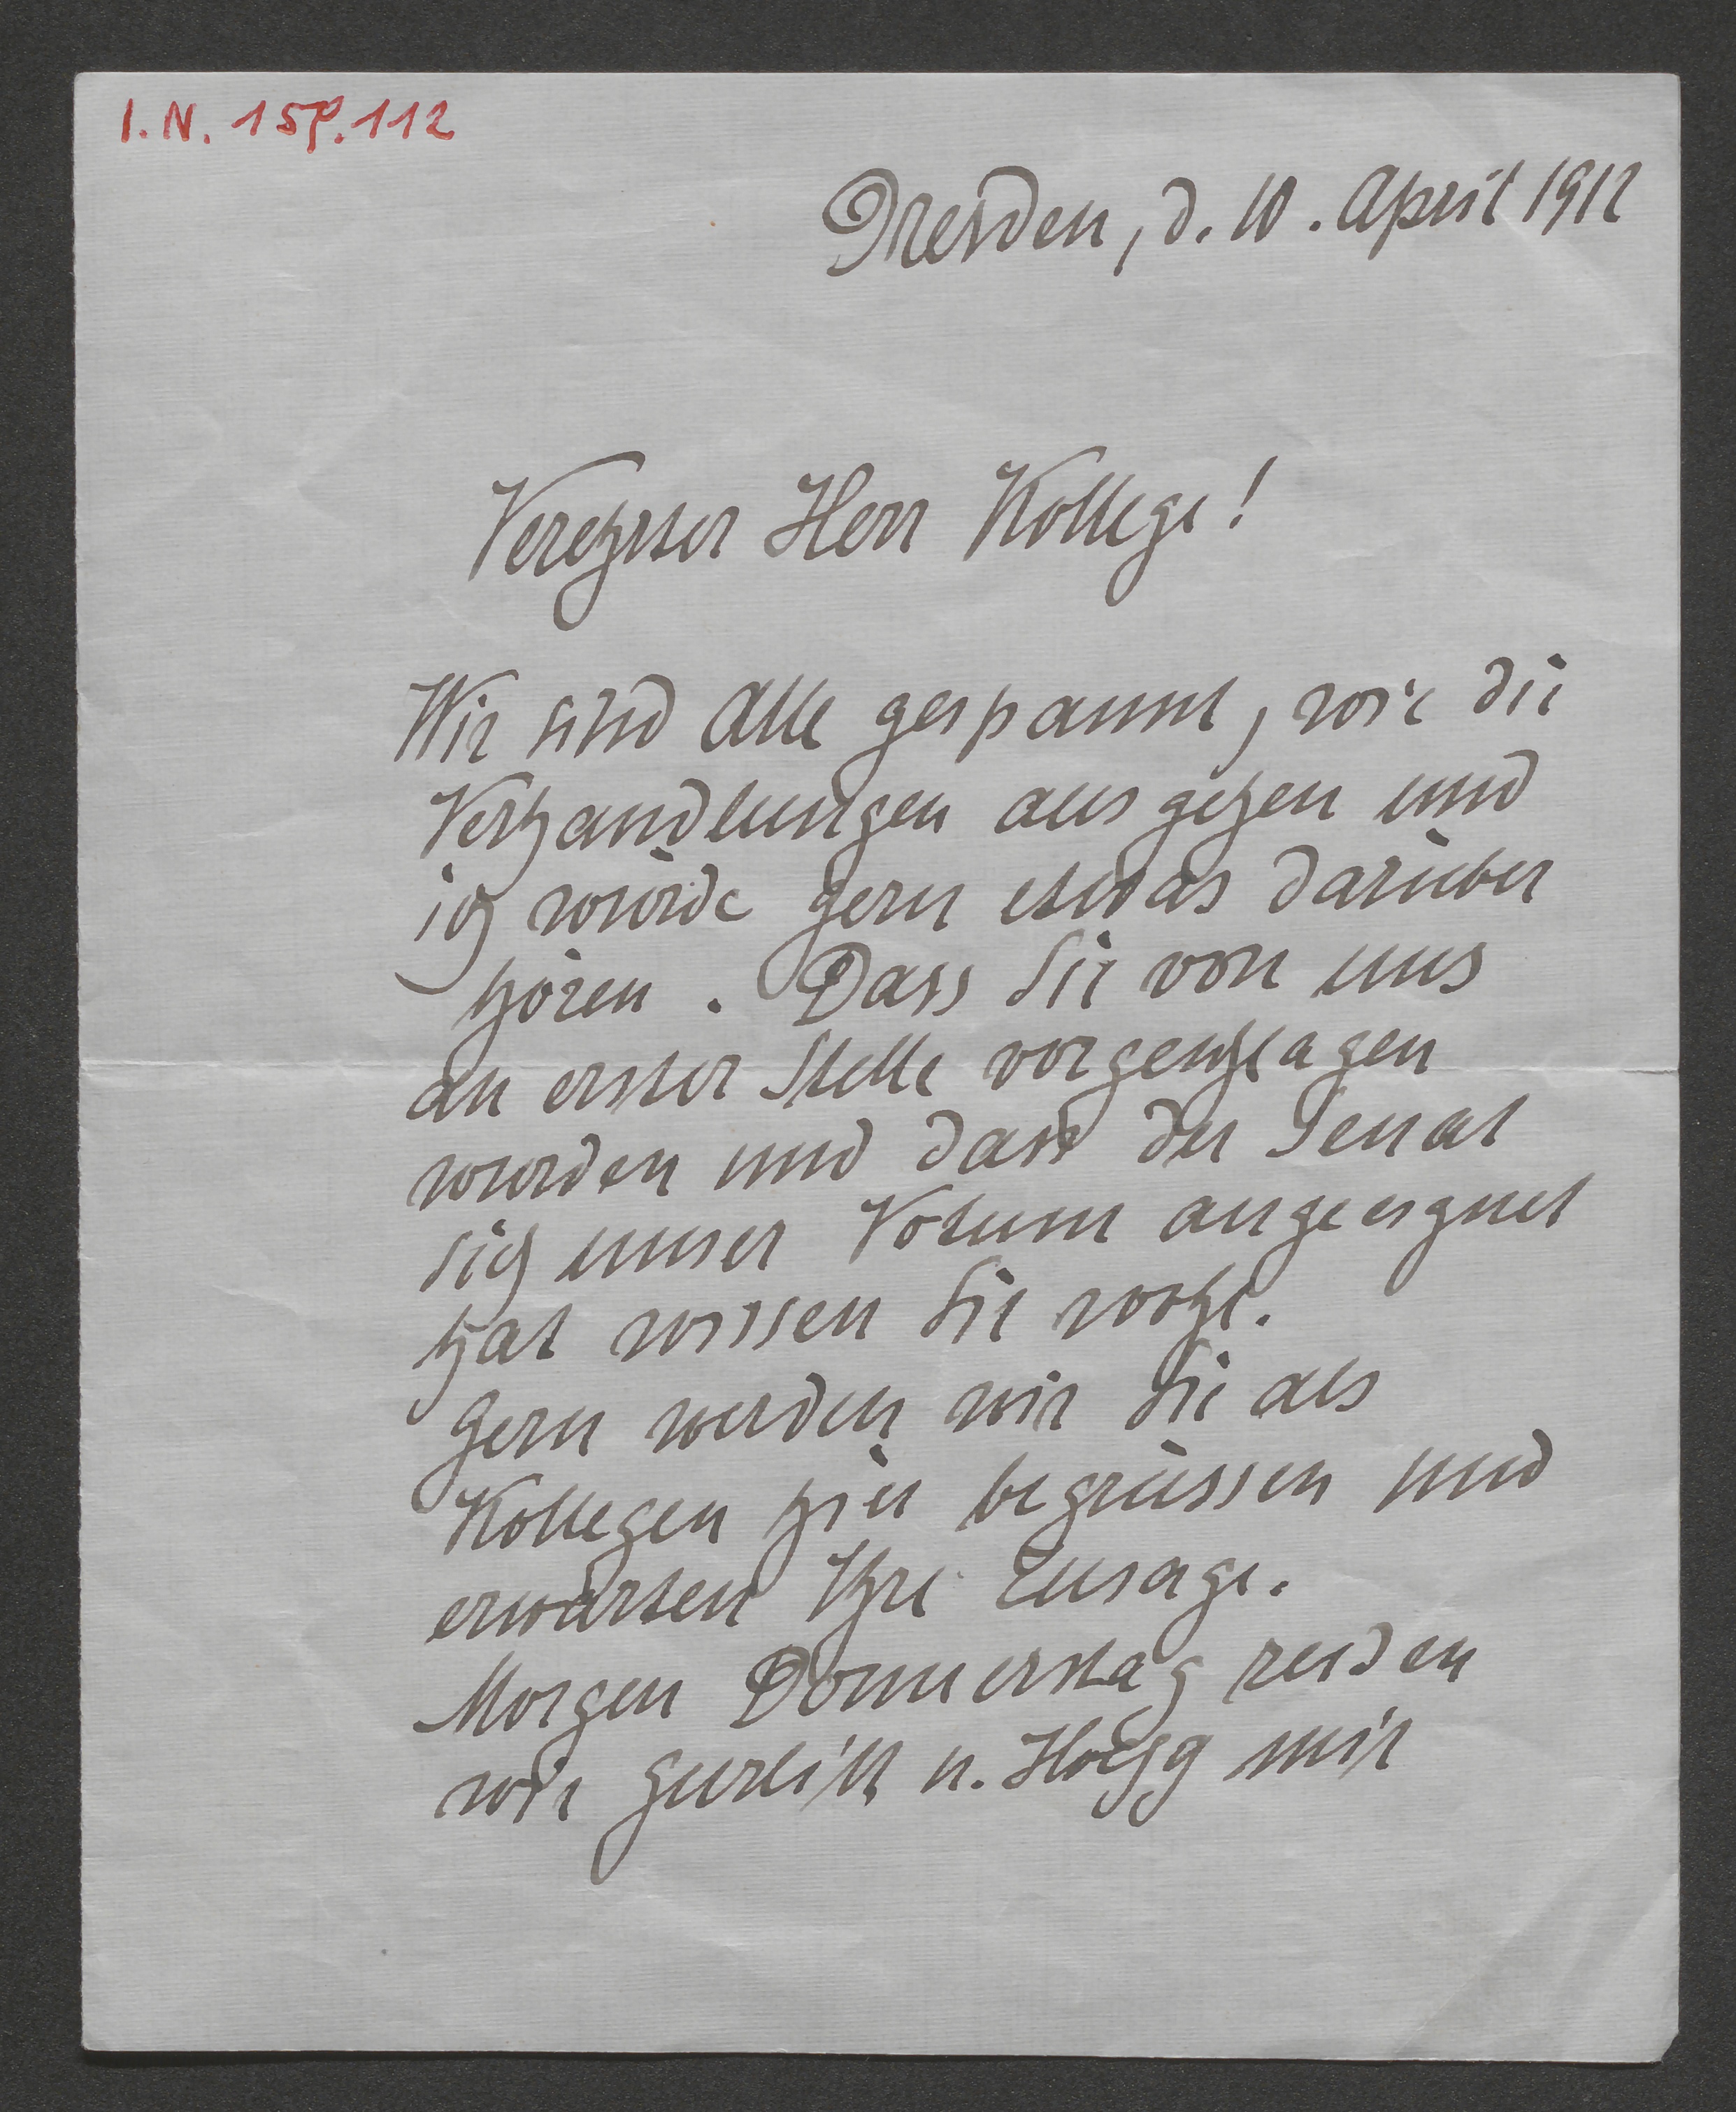 I.N. 159.112
Dresden, d. 10. April 1912
Verehrter Herr Kollege!
Wir sind Alle gespannt, wie die
Verhandlungen ausgehen und
ich würde gern etwas darüber
hören. Dass Sie von uns
an erster Stelle vorgeschlagen
wurden und dass der Senat
sich unser Votum angeeignet
hat wissen Sie wohl.
Gern werden wir Sie als
Kollegen hier begrüssen und
erwarten Ihre Zusage.
Morgen Donnerstag reisen
wir Gurlitt u. Högg mit